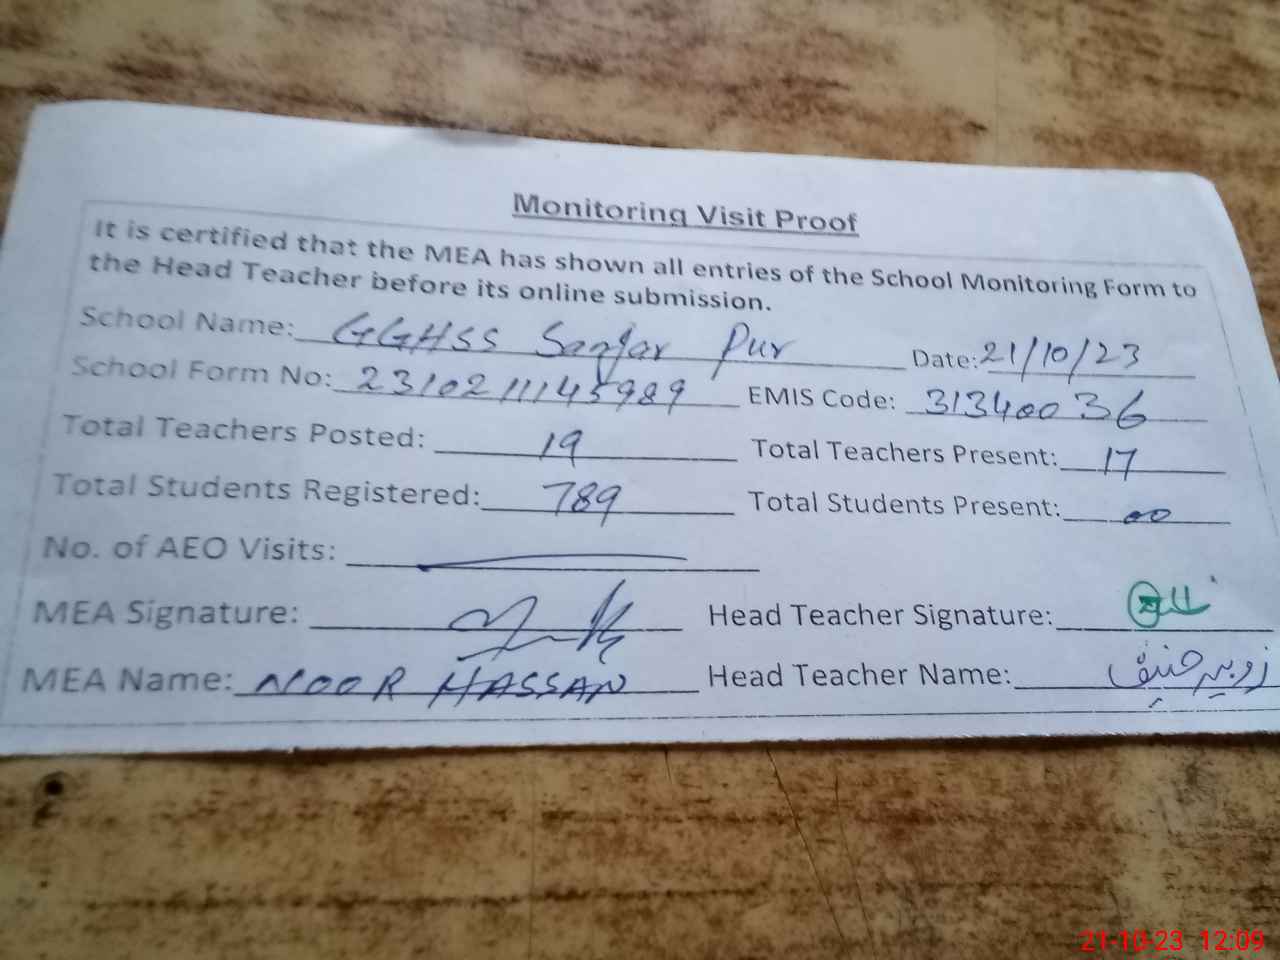 Monitoring Visit Proof
It is certified that the MEA has shown all entries of the School Monitoring Form to
the Head Teacher before its online submission.
School Name: GGHSS Sanjar Pur Date: 21/10/23
School Form No: 2310211145989 EMIS Code: 31340036
Total Teachers Posted: 19 Total Teachers Present: 17
Total Students Registered: 789 Total Students Present: 00
No. of AEO Visits:
MEA Signature: Head Teacher Signature:
MEA Name: NOOR HASSAN Head Teacher Name: حنیف
21-10-23 12:09